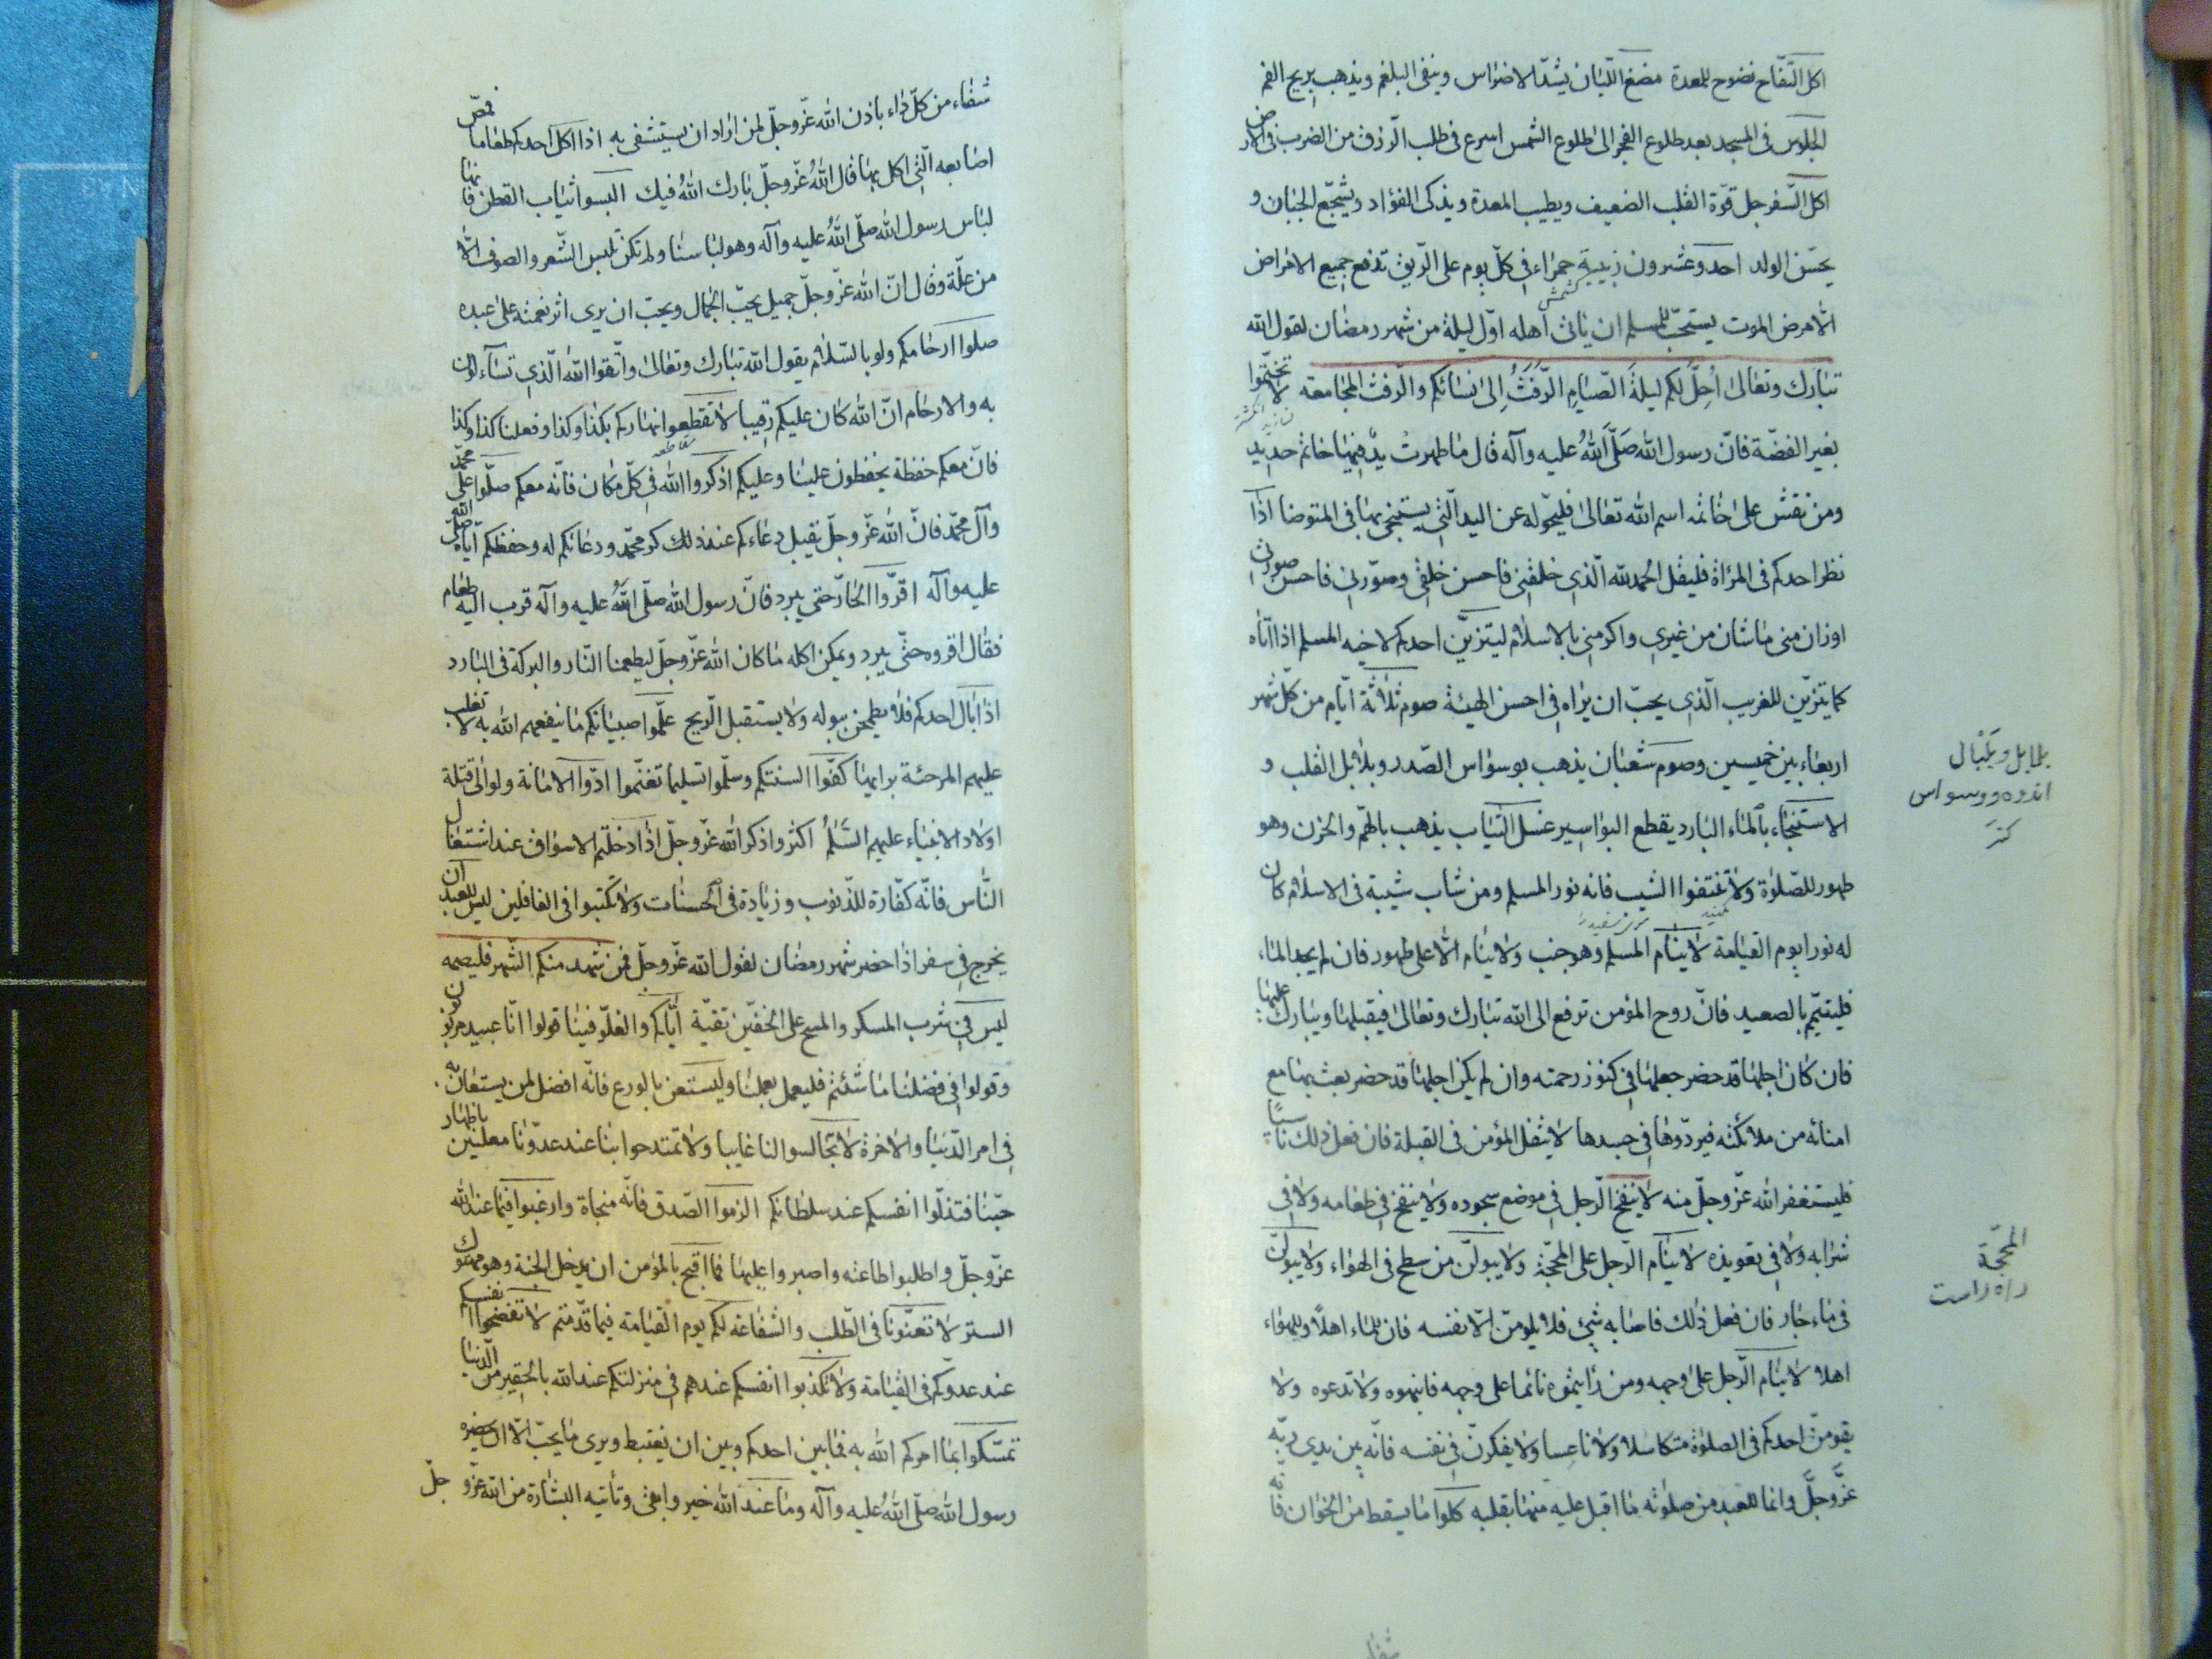 اكل التّفّاح نضوح للمعدة مضغ اللّبان يشدّ الاضراس وينفى البلغم ويذهب بريح الفم
الجلوس فى المسجد بعد طلوع الفجر الى طلوع الشمس اسرع فى طلب الرّزق من الضرب فى الارض
اكل السّفرجل قوّة القلب الضعيف ويطيب المعدة ويذكى الفؤاد ويشجّع الجبان و
يحسّن الولد احد وعشرون زبيبة حمراء فى كلّ يوم على الرّيق تدفع جميع الامراض
كشمش
الّا مرض الموت يستحبّ للمسلم ان ياتى اهله اوّل ليلة من شهر رمضان لقول الله
تبارك وتعالى اُحِلَّ لَكم ليلَةَ الصّيامِ الرَّفَثُ اِلى نسائكم والرّفث المجامعة لا تختّموا
بغير الفضّة فانّ رسول الله صَلَّى اللهُ عليه وآله قال ما طهرتْ يدٌ فيها خاتم حديد
ومن نقش على خاتمه اسم الله تعالى فليحوّله عن اليد الّتى يستنجى بها فى المتوضا اذا
نظر احدكم فى المرٰاة فليقل الحمد لله الّذى خلقنى فاحسن خلقى وصوّرنى فاحسن صورتى
اوزان منى ما شان من غيرى واكرمنى بالاسلام ليتزيّن احدكم لاخيه المسلم اذا اتاه
كما يتزيّن للغريب الّذى يحبّ ان يراه فى احسن الهيئة صوم ثلاثة ايّام من كلّ شهر
اربعاء بين خميسين وصوم شعبان يذهب بوسواس الصّدر وبلابل القلب و
بلابل وبَلْبال
اندوه ووسواس
كنز
الاستنجاء بالماء البارد يقطع البواسير غسل الثياب يذهب بالهمّ والحزن وهو
طهور للصّلوة ولا تنتفوا الشيب فانه نور المسلم ومن شاب شيبة فى الاسلام كان
له نورا يوم القيامة لا ينام المسلم وهو جنب ولا ينام الّا على طهور فان لم يجد الماء
فليتيمّم بالصعيد فانّ روح المؤمن ترفع الى الله تبارك وتعالى فيقبلها ويبارك عليها
فان كان اجلها قد حضر جعلها فى كنوز رحمته وان لم يكن اجلها قد حضر بعث بها مع
امنائه من ملائكته فيردّوها فى جسدها لا يتفل المؤمن فى القبلة فان فعل ذلك ناسيًا
فليستغفر الله عزّ وجلّ منه لا ينفخ الرّجل فى موضع سجوده ولا ينفخ فى طعامه ولا فى
شرابه ولا فى تعويذه لا ينام الرّجل على المحجّة ولا يبولنّ من سطح فى الهواء ولا يبولنّ
المحجّة
راه راست
فى ماء جار فان فعل ذلك فاصابه شىء فلا يلومنّ الّا نفسه فان للماء اهلاً وللهواء
اهلا لا ينام الرّجل على وجهه ومن رأيتموه نائما على وجهه فانبهوه ولا تدعوه ولا
يقومنّ احدكم فى الصلوة متكاسلا ولا ناعسا ولا يفكرنّ فى نفسه فانّه بين يدى ربّه
عزَّ وجلَّ وانما للعبد من صلوته ما اقبل عليه منها بقلبه كلوا ما يسقط من الخوان فانّه
شفاء من كلّ داء باذن الله عزّ وجلّ لمن اراد ان يستشفى به اذا اكل احدكم طعاما فمصّ
اصابعه الّتى اكل بها قال اللهُ عزّ وجلّ بارك اللهُ فيك البسوا ثياب القطن فانّها
لباس رسول الله صلّى اللهُ عليه وآله وهو لباسنا ولم تكن تلبس الشّعر والصوف الّا
من علّة وقال انّ الله عزّ وجلّ جميل يحبّ الجمال ويحبّ ان يرى اثر نعمته على عبده
صلوا ارحامكم ولو بالسّلام يقول الله تبارك وتعالى واتّقوا الله الّذى تسآءلون
به والارحام انّ الله كان عليكم رقيبا لا تقطعوا نهاركم بكذا وكذا وفعلنا كذا وكذا
فانّ معكم حفظة يحفظون علينا وعليكم اذكروا الله فى كلّ مكان فانّه معكم صلّوا على محمّد
وآل محمّد فانّ الله عزّ وجلّ يقبل دعاءكم عند ذلك كر محمّد ودعائكم له وحفظكم ايّاه صلّى الله
عليه وآله اقرّوا الحارّ حتى يبرد فانّ رسول الله صلّى اللهُ عليه وآله قرب اليه طعام
فقال اقروه حتّى يبرد ويمكن اكله ما كان الله عزّ وجلّ ليطعمنا النّار والبركة فى البارد
اذا بال احدكم فلا يطمحن ببوله ولا يستقبل الرّيح علّموا صبيانكم ما ينفعهم الله به لا تغلب
عليهم المرجئة برايها كفّوا السنتكم وسلّموا تسليما تغنّموا ادّوا الامانة ولو الى قتلة
اولاد الانبياء عليهم السَّلٰمُ اكثروا ذكر الله عزّ وجلّ اذا دخلتم الاسواق عند اشتغال
النّاس فانّه كفّارة للذّنوب وزيادة فى الحسنات ولا تكتبوا فى الغافلين ليس للعبد ان
يخرج فى سفر اذا حضر شهر رمضان لقول الله عزّ وجلّ فمن شهد منكم الشّهر فليصمه
ليس فى شرب المسكر والمسح على الخفّين تقيّة ايّاكم والغلوّ فينا قولوا انّا عبيد مربوبون
وقولوا فى فضلنا ما شئتم فليعمل بعملنا وليستعن بالورع فانّه افضل لمن يستعان به
فى امر الدّنيا والاخرة لا تجالسوا لنا غايبا ولا تمتدحوا بنا عند عدوّنا معلنين باظهار
حبّنا فتذلّوا انفسكم عند سلطانكم الزموا الصّدق فانّه منجاة وارغبوا فيما عند الله
عزّ وجلّ واطلبوا طاعته واصبروا عليها فما اقبح بالمؤمن ان يدخل الجنة وهو مهتوك
الستر لا تعنّونا فى الطّلب والشّفاعة لكم يوم القيامة فيما قدّمتم لا تفضحوا انفسكم
عند عدوّكم فى القيامة ولا تكذبوا انفسكم عندهم فى منزلتكم عند الله بالحقير من الدّنيا
تمسّكوا بما امركم الله به فما بين احدكم وبين ان يغتبط ويرى ما يحبّ الّا ان يحضره
رسول الله صلّى اللهُ عليه وآله وما عند الله خير وابقى وتأتيه البشارة من الله عزّ وجلّ